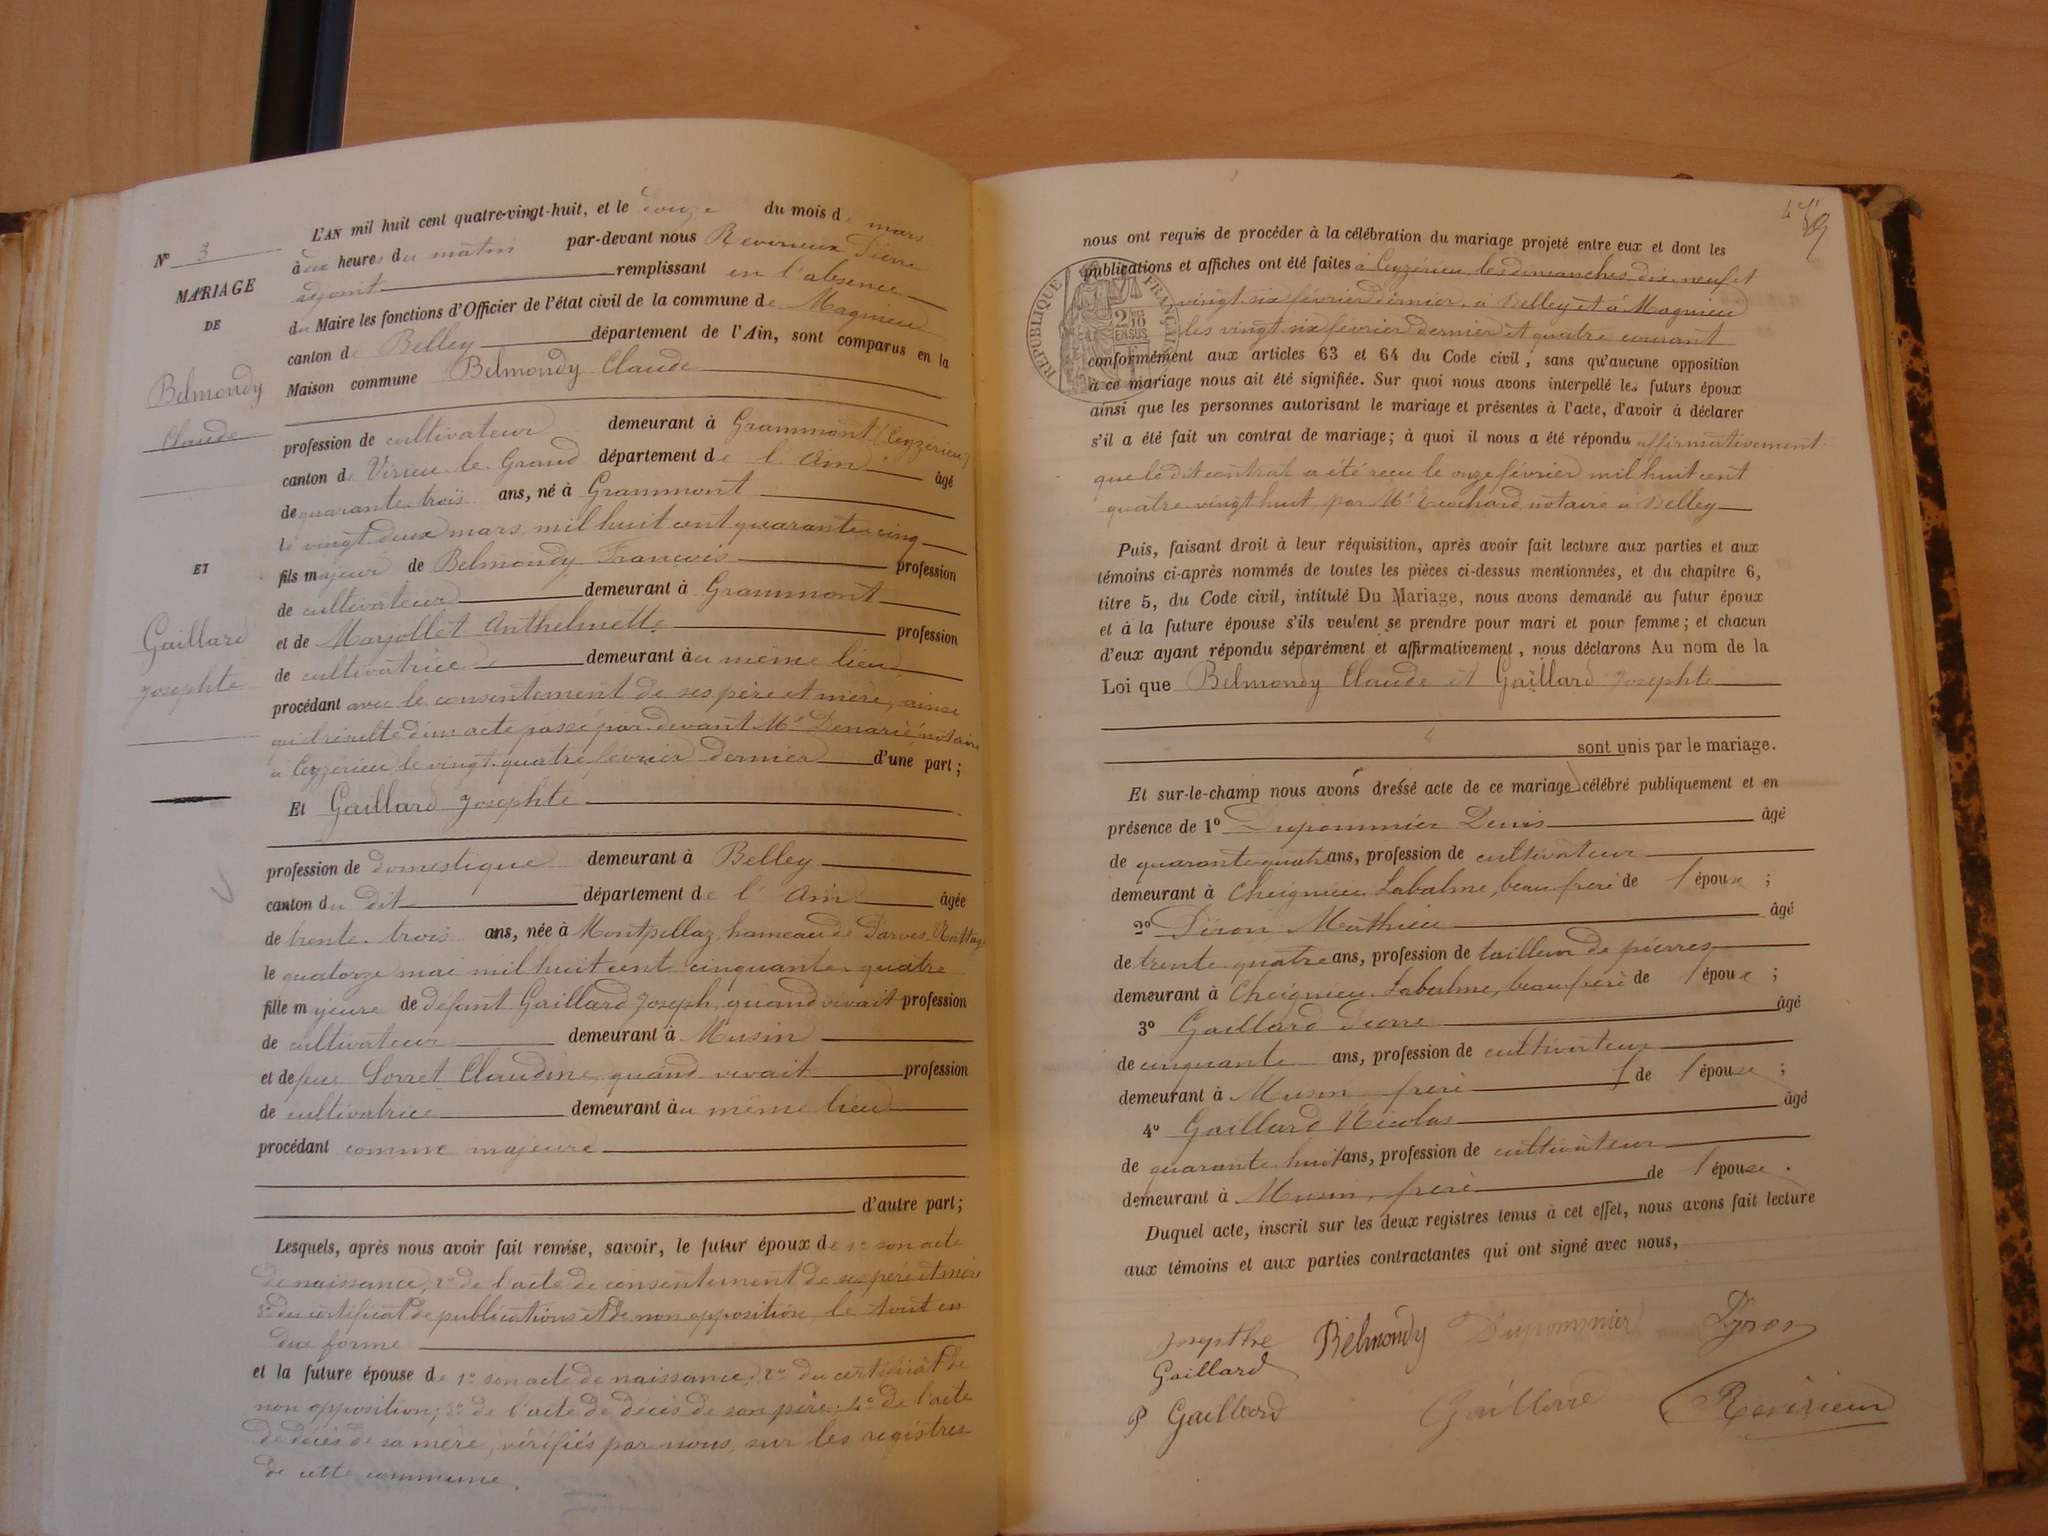 N° 3
MARIAGE
DE
Belmondy
Claude
ET
Gaillard
Josephte
L'AN mil huit cent quatre-vingt-huit, et le douze du mois de mars
à dix heures du matin par-devant nous Reverieux Pierre
adjoint remplissant en l'absence
du Maire les fonctions d'Officier de l'état civil de la commune de Magnieu
canton de Belley département de l'Ain, sont comparus en la
Maison commune Belmondy Claude
profession de cultivateur demeurant à Grammont (Ceyzérieu)
canton de Virieu-le-Grand département de l'Ain âgé
de quarante-trois ans, né à Grammont
le vingt-deux mars mil huit cent quarante-cinq
fils majeur de Belmondy François profession
de cultivateur demeurant à Grammont
et de Marjollet Anthelmette profession
de cultivatrice demeurant au même lieu
procédant avec le consentement de ses père et mère, ainsi
qu'il résulte d'un acte passé par devant Me Denarié notaire
à Ceyzérieu le vingt-quatre février dernier d'une part ;
Et Gaillard Josephte
profession de domestique demeurant à Belley
canton du dit département de l'Ain âgée
de trente-trois ans, née à Montpellaz, hameau de Parves
le quatorze mai mil huit cent cinquante-quatre
fille majeure de défunt Gaillard Joseph, quand vivait profession
de cultivateur demeurant à Musin
et de feue Sorret Claudine, quand vivait profession
de cultivatrice demeurant au même lieu
procédant comme majeure
d'autre part ;
Lesquels, après nous avoir fait remise, savoir, le futur époux de 1° son acte
de naissance, 2° de l'acte de consentement de ses père et mère
3° du certificat de publications et de non opposition, le tout en
due forme
et la future épouse de 1° son acte de naissance ; 2° du certificat de
non opposition ; 3° de l'acte de décès de son père ; 4° de l'acte
de décès de sa mère, vérifiés par nous, sur les registres
de cette commune.
49
RÉPUBLIQUE FRANÇAISE
2/10 EN SUS
nous ont requis de procéder à la célébration du mariage projeté entre eux et dont les
publications et affiches ont été faites à Ceyzérieu, les dimanches dix-neuf et
vingt-six février dernier, à Belley et à Magnieu
les vingt-six février dernier et quatre courant
conformément aux articles 63 et 64 du Code civil, sans qu'aucune opposition
à ce mariage nous ait été signifiée. Sur quoi nous avons interpellé les futurs époux
ainsi que les personnes autorisant le mariage et présentes à l'acte, d'avoir à déclarer
s'il a été fait un contrat de mariage ; à quoi il nous a été répondu affirmativement
que le dit contrat a été reçu le onze février mil huit cent
quatre-vingt-huit, par Me notaire à Belley
Puis, faisant droit à leur réquisition, après avoir fait lecture aux parties et aux
témoins ci-après nommés de toutes les pièces ci-dessus mentionnées, et du chapitre 6,
titre 5, du Code civil, intitulé Du Mariage, nous avons demandé au futur époux
et à la future épouse s'ils veulent se prendre pour mari et pour femme ; et chacun
d'eux ayant répondu séparément et affirmativement, nous déclarons Au nom de la
Loi que Belmondy Claude et Gaillard Josephte
sont unis par le mariage.
Et sur-le-champ nous avons dressé acte de ce mariage célébré publiquement et en
présence de 1° Dupommier Denis âgé
de quarante-quatre ans, profession de cultivateur
demeurant à Cheignieu Labalme, beau frère de l'épouse ;
2° Piron Mathieu âgé
de trente-quatre ans, profession de tailleur de pierres
demeurant à Cheignieu Labalme, beau frère de l'épouse ;
3° Gaillard Pierre âgé
de cinquante ans, profession de cultivateur
demeurant à Musin frère de l'épouse ;
4° Gaillard Nicolas âgé
de quarante-huit ans, profession de cultivateur
demeurant à Musin, frère de l'épouse.
Duquel acte, inscrit sur les deux registres tenus à cet effet, nous avons fait lecture
aux témoins et aux parties contractantes qui ont signé avec nous,
Josepthe Belmondy Dupommier
Gaillard
P Gaillard Gaillard Reverieux